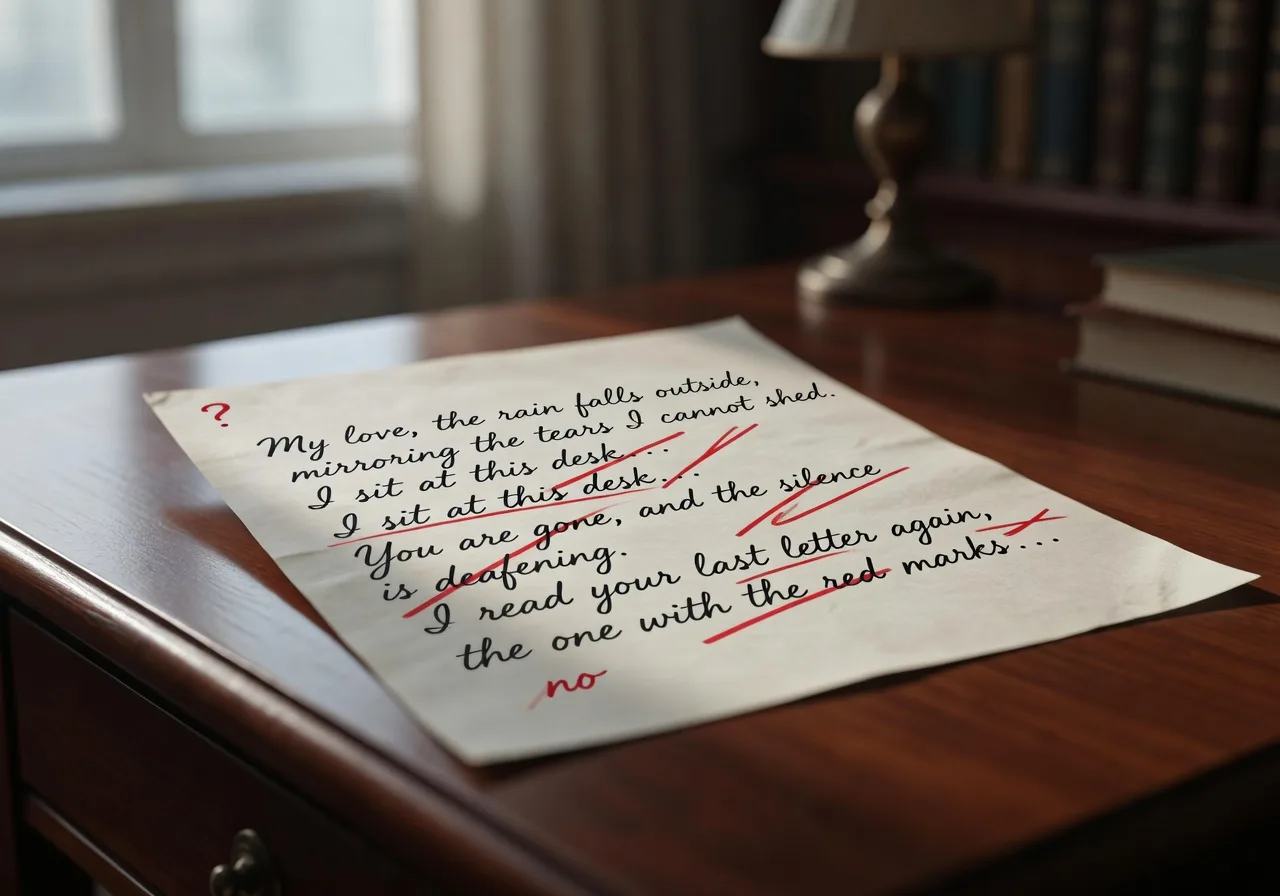 ?
My love, the rain falls outside,
mirroring the tears I cannot shed.
I sit at this desk...
I sit at this desk...
You are gone, and the silence
is deafening.
I read your last letter again,
the one with the red marks...
no